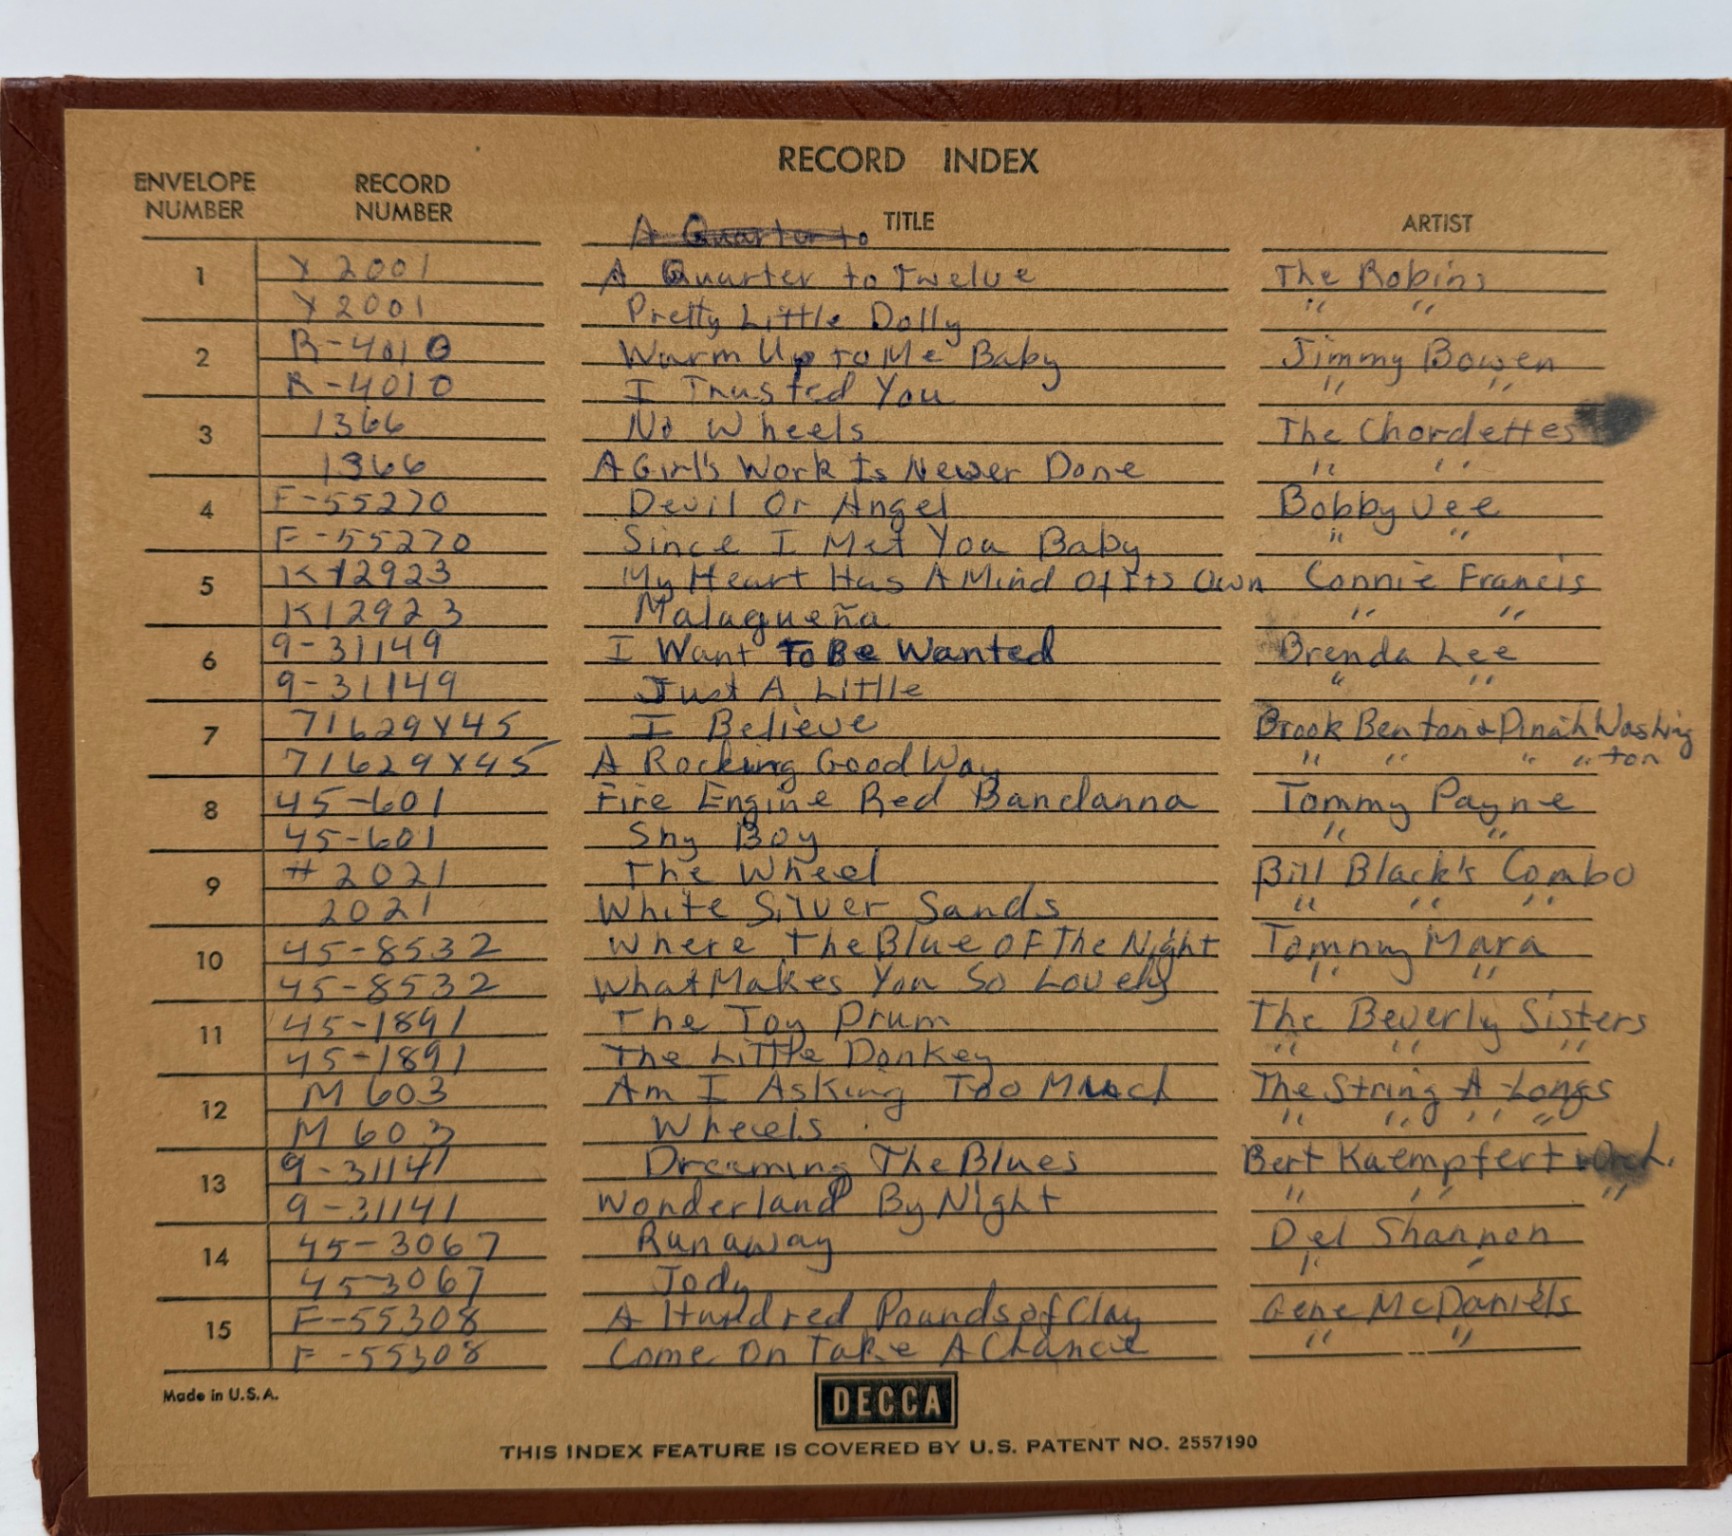 RECORD INDEX
ENVELOPE NUMBER RECORD NUMBER TITLE ARTIST
A Quarter to
1 X 2001 A Quarter to Twelve The Robins
X 2001 Pretty Little Dolly " "
2 R-4010 Warm Up to Me Baby Jimmy Bowen
R-4010 I Trusted You " "
3 1366 No Wheels The Chordettes
1366 A Girl's Work Is Never Done " "
4 F-55270 Devil Or Angel Bobby Vee
F-55270 Since I Met You Baby " "
5 K12923 My Heart Has A Mind Of Its Own Connie Francis
K12923 Malagueña " "
6 9-31149 I Want To Be Wanted Brenda Lee
9-31149 Just A Litlle " "
7 71629X45 I Believe Brook Benton & Dinah Washing
71629X45 A Rocking Good Way " " " " ton
8 45-601 Fire Engine Red Bandanna Tommy Payne
45-601 Shy Boy " "
9 #2021 The Wheel Bill Black's Combo
2021 White Silver Sands " " "
10 45-8532 Where The Blue Of The Night Tommy Mara
45-8532 What Makes You So Lovely " "
11 45-1891 The Toy Drum The Beverly Sisters
45-1891 The Little Donkey " " "
12 M 603 Am I Asking Too Much The String A Longs
M 603 Wheels " " " "
13 9-31141 Dreaming The Blues Bert Kaempfert Orch.
9-31141 Wonderland By Night " " "
14 45-3067 Runaway Del Shannon
45-3067 Jody " "
15 F-55308 A Hundred Pounds of Clay Gene McDaniels
F-55308 Come On Take A Chance " "
Made in U.S.A.
DECCA
THIS INDEX FEATURE IS COVERED BY U.S. PATENT NO. 2557190